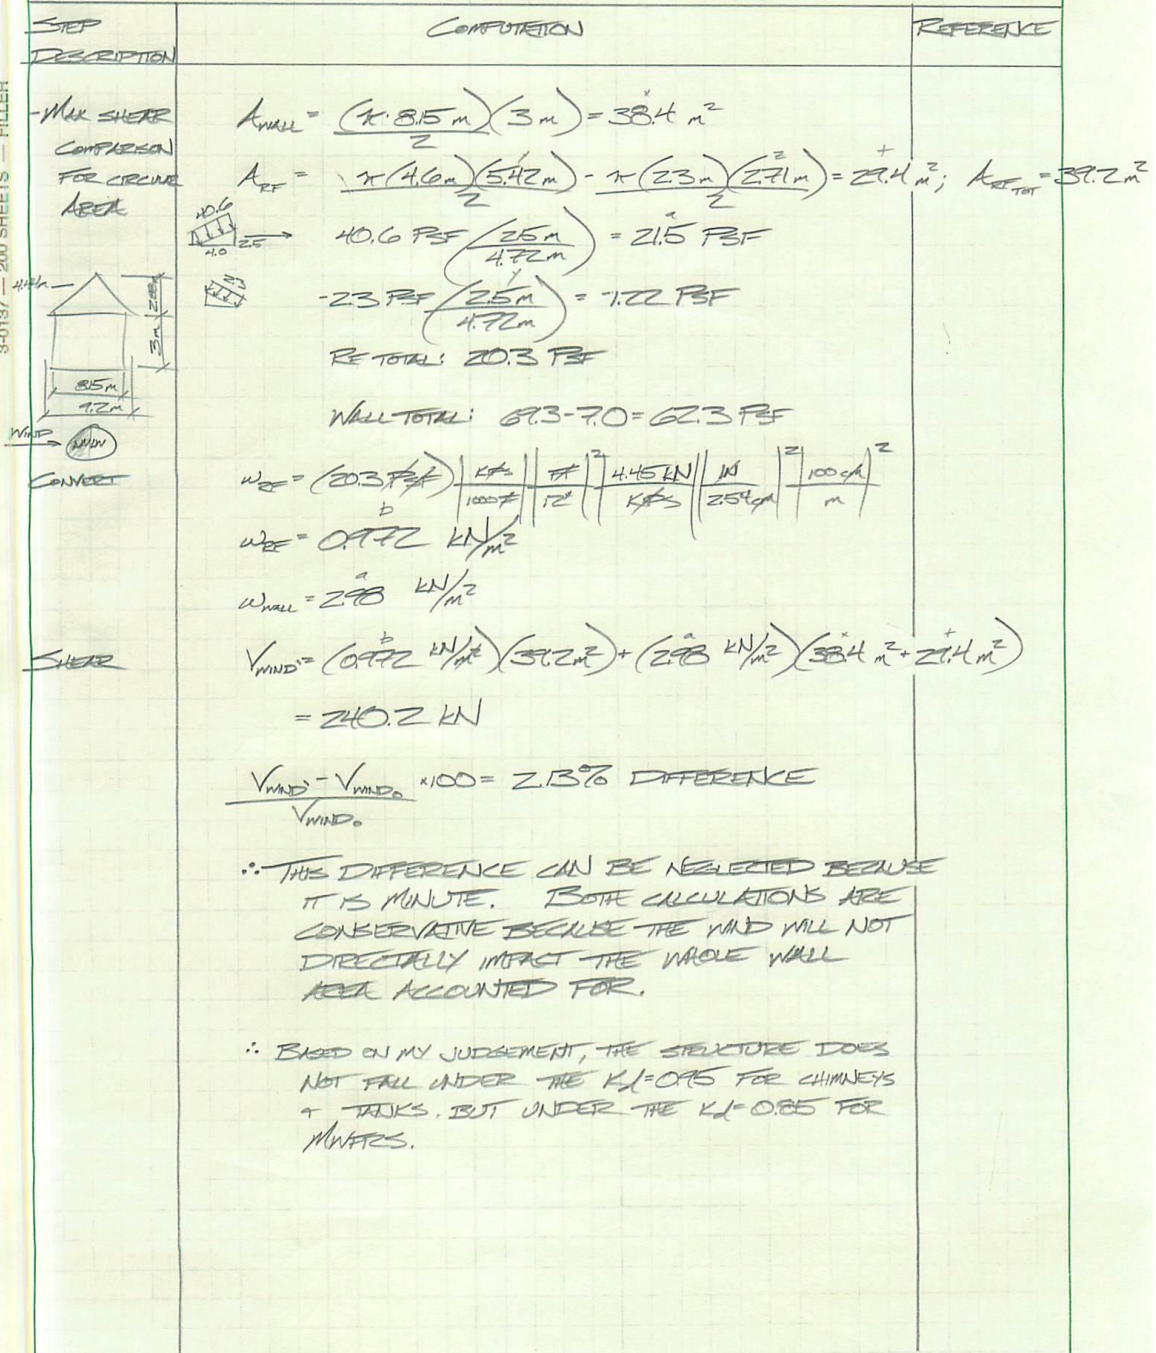 STEP DESCRIPTION
COMPUTATION
REFERENCE
3-0137 — 200 SHEETS — FILLER
- MAX SHEAR COMPARISON FOR CIRCULAR AREA
A_WALL = (π·8.15 m)(3 m)/2 = 38.4 m²
A_RF = π(4.6m)(5.42m)/2 - π(2.3m)(2.71m)/2 = 29.4 m²; A_RF_TOT = 39.2 m²
40.6
4.0
2.5
40.6 PSF (2.5m/4.72m) = 21.5 PSF
2.3
-2.3 PSF (2.5m/4.72m) = -1.22 PSF
RF TOTAL: 20.3 PSF
3m
8.15m
9.2m
WALL TOTAL: 69.3-7.0=62.3 PSF
WIND
CONVERT
ω_RF = (20.3 PSF) | KIPS/1000# | FT/12" |² | 4.45 KN/KIPS | IN/2.54 cm |² | 100 cm/m |²
ω_RF = 0.972 KN/m²
ω_WALL = 2.98 KN/m²
SHEAR
V_WIND' = (0.972 KN/m²)(39.2m²) + (2.98 KN/m²)(38.4 m² + 29.4 m²)
= 240.2 KN
(V_WIND' - V_WIND₀)/V_WIND₀ ×100 = 2.13% DIFFERENCE
∴ THIS DIFFERENCE CAN BE NEGLECTED BECAUSE
IT IS MINUTE. BOTH CALCULATIONS ARE
CONSERVATIVE BECAUSE THE WIND WILL NOT
DIRECTALLY IMPACT THE WHOLE WALL
AREA ACCOUNTED FOR.
∴ BASED ON MY JUDGEMENT, THE STRUCTURE DOES
NOT FALL UNDER THE Kd=0.95 FOR CHIMNEYS
+ TANKS. BUT UNDER THE Kd=0.85 FOR
MWFRS.